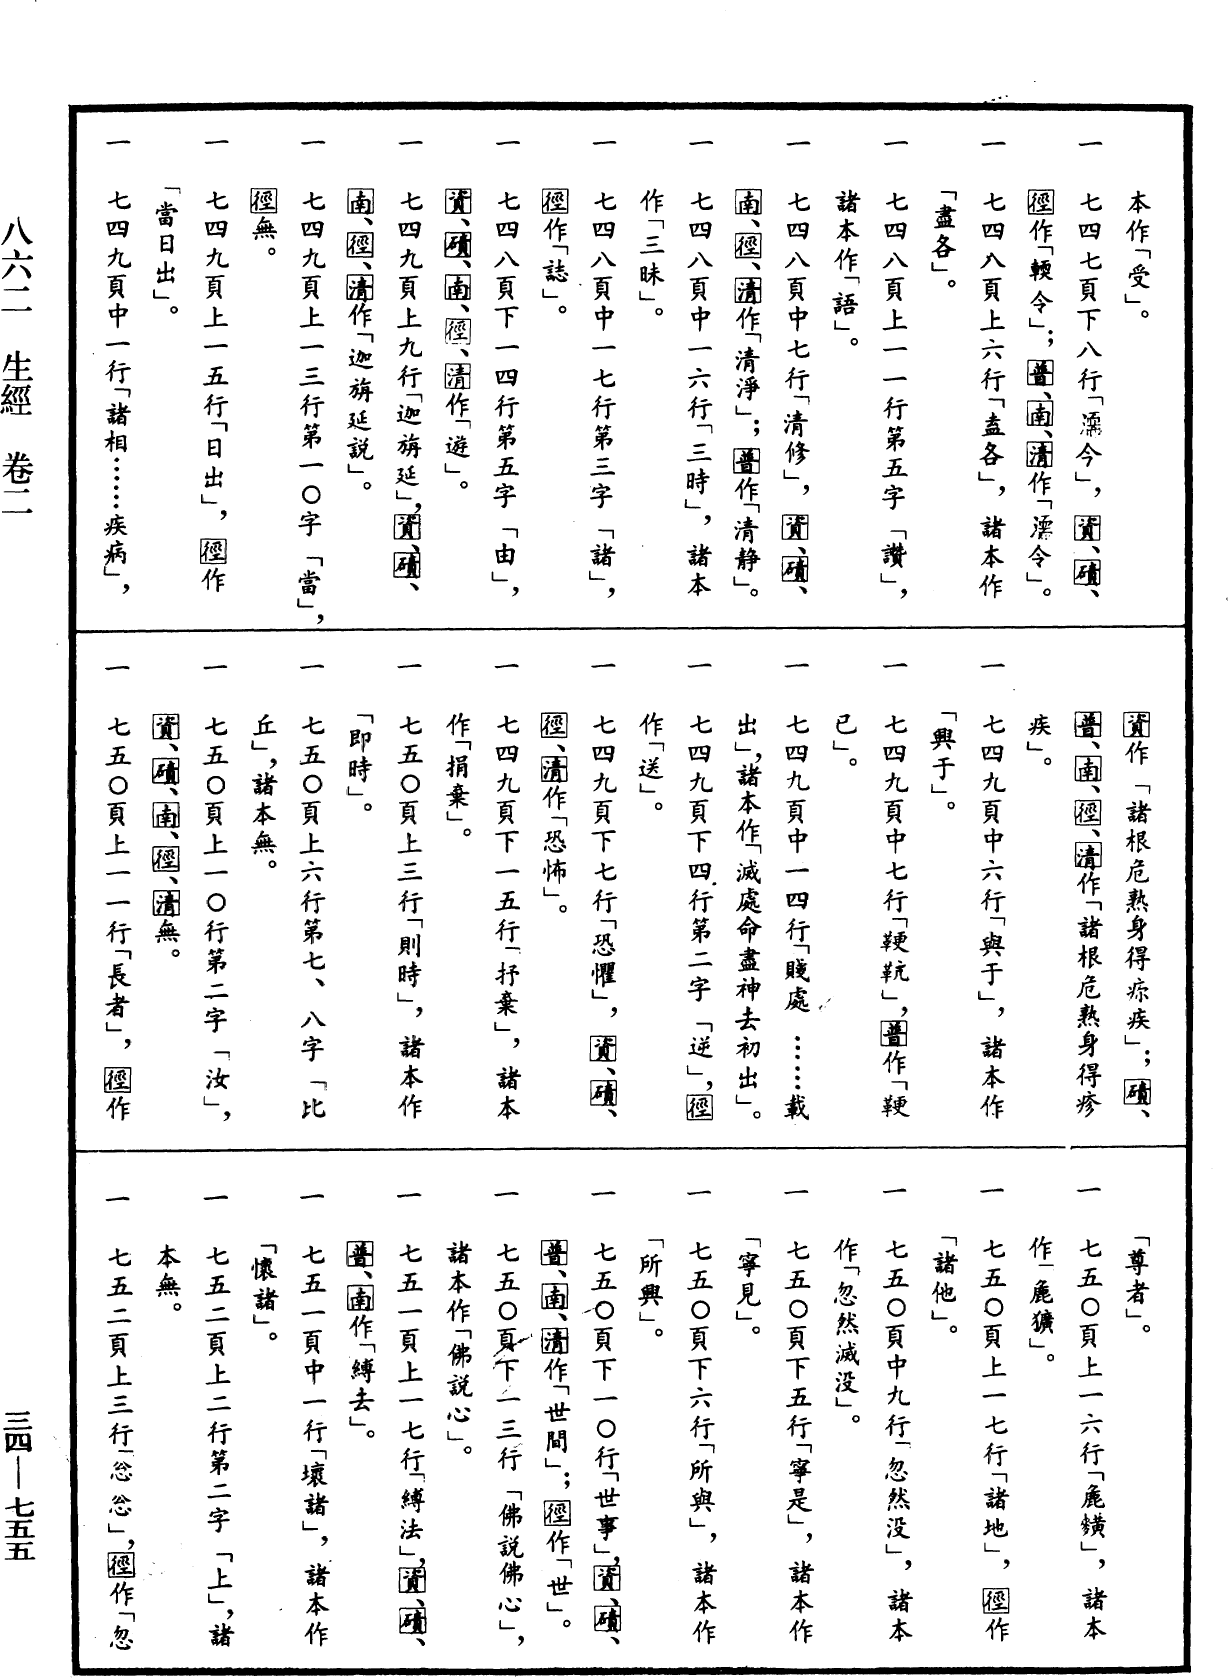 本作「受」。
一 七四七頁下八行「濡今」，資、磧、
徑作「輭令」；普、南、清作「濡令」。
一 七四八頁上六行「盍各」，諸本作
「盡各」。
一 七四八頁上一一行第五字「讚」，
諸本作「語」。
一 七四八頁中七行「清修」，資、磧、
南、徑、清作「清淨」；普作「清靜」。
一 七四八頁中一六行「三時」，諸本
作「三昧」。
一 七四八頁中一七行第三字「諸」，
徑作「誌」。
一 七四八頁下一四行第五字「由」，
資、磧、南、徑、清作「遊」。
一 七四九頁上九行「迦旃延」，資、磧、
南、徑、清作「迦旃延説」。
一 七四九頁上一三行第一〇字「當」，
徑無。
一 七四九頁上一五行「日出」，徑作
「當日出」。
一 七四九頁中一行「諸相……疾病」，
資作「諸根危熟身得疢疾」；磧、
普、南、徑、清作「諸根危熟身得疹
疾」。
一 七四九頁中六行「與于」，諸本作
「興于」。
一 七四九頁中七行「鞕䩕」，普作「鞕
已」。
一 七四九頁中一四行「賤處……載
出」，諸本作「滅處命盡神去初出」。
一 七四九頁下四行第二字「逆」，徑
作「送」。
一 七四九頁下七行「恐懼」，資、磧、
徑、清作「恐怖」。
一 七四九頁下一五行「抒棄」，諸本
作「捐棄」。
一 七五〇頁上三行「則時」，諸本作
「即時」。
一 七五〇頁上六行第七、八字「比
丘」，諸本無。
一 七五〇頁上一〇行第二字「汝」，
資、磧、南、徑、清無。
一 七五〇頁上一一行「長者」，徑作
「尊者」。
一 七五〇頁上一六行「麁䵃」，諸本
作「麁獷」。
一 七五〇頁上一七行「諸地」，徑作
「諸他」。
一 七五〇頁中九行「忽然没」，諸本
作「忽然滅没」。
一 七五〇頁下五行「寧是」，諸本作
「寧見」。
一 七五〇頁下六行「所與」，諸本作
「所興」。
一 七五〇頁下一〇行「世事」，資、磧、
普、南、清作「世間」；徑作「世」。
一 七五〇頁下一三行「佛説佛心」，
諸本作「佛説心」。
一 七五一頁上一七行「縛法」，資、磧、
普、南作「縛去」。
一 七五一頁中一行「壞諸」，諸本作
「懷諸」。
一 七五二頁上二行第二字「上」，諸
本無。
一 七五二頁上三行「忩忩」，徑作「忽
八六二 生經 卷二
三四—七五五